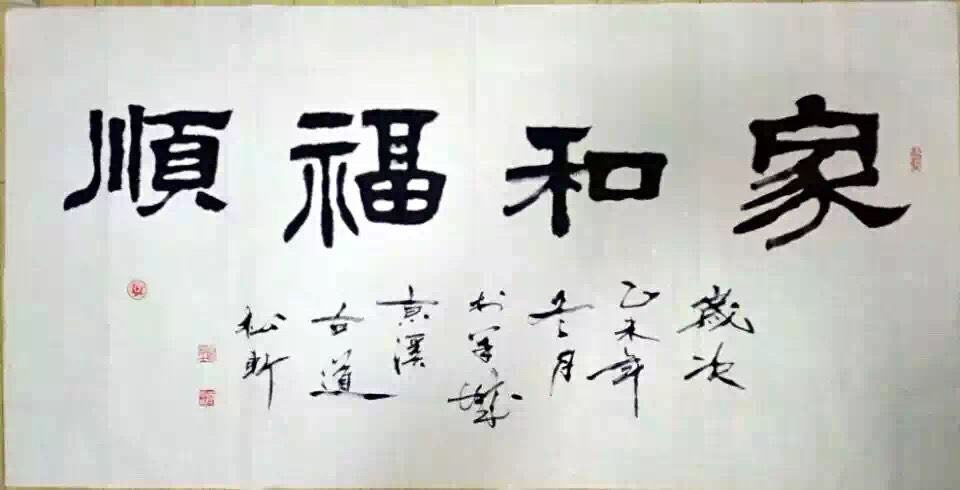 家和福順
歲次
乙未年
冬月
於羊城
京溪
古道
松昕